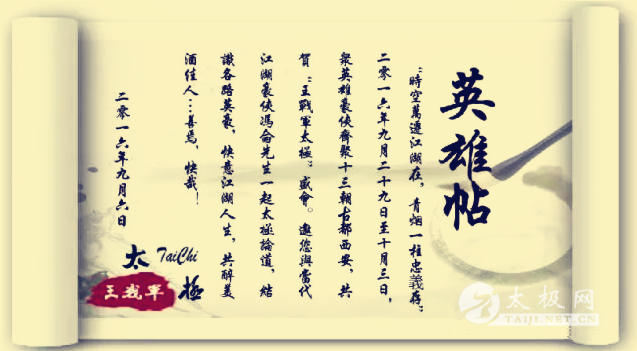 英雄帖
“時空萬遷江湖在，青烟一柱忠義存”
二零一六年九月二十九日至十月三日，
眾英雄豪俠齊聚十三朝古都西安，共
賀“王戰軍太極”盛會。邀您與當代
江湖豪俠馮侖先生一起太極論道，結
識各路英豪，快意江湖人生，共醉美
酒佳人…善焉，快哉！
二零一六年九月六日
太極
TaiChi
王戰軍
太极网
TAIJI.NET.CN